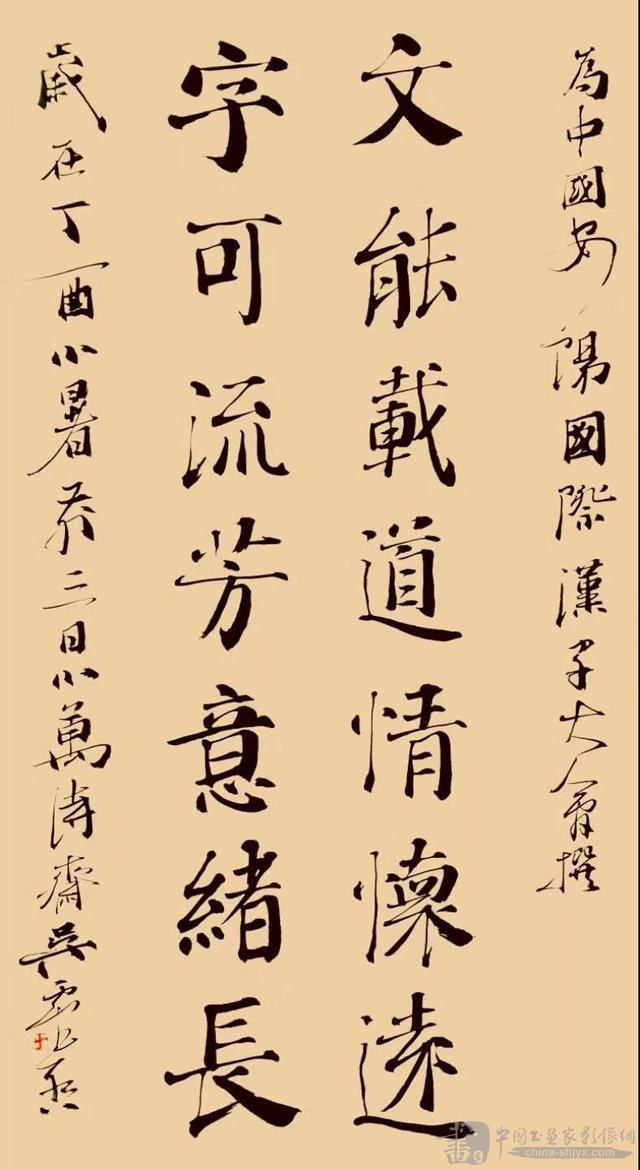 為中國安陽國際漢字大會撰
文能載道情懷遠
字可流芳意緒長
歲在丁酉小暑前三日小萬詩齋吳震啓
中国书画家影像網
china-shjyx.com